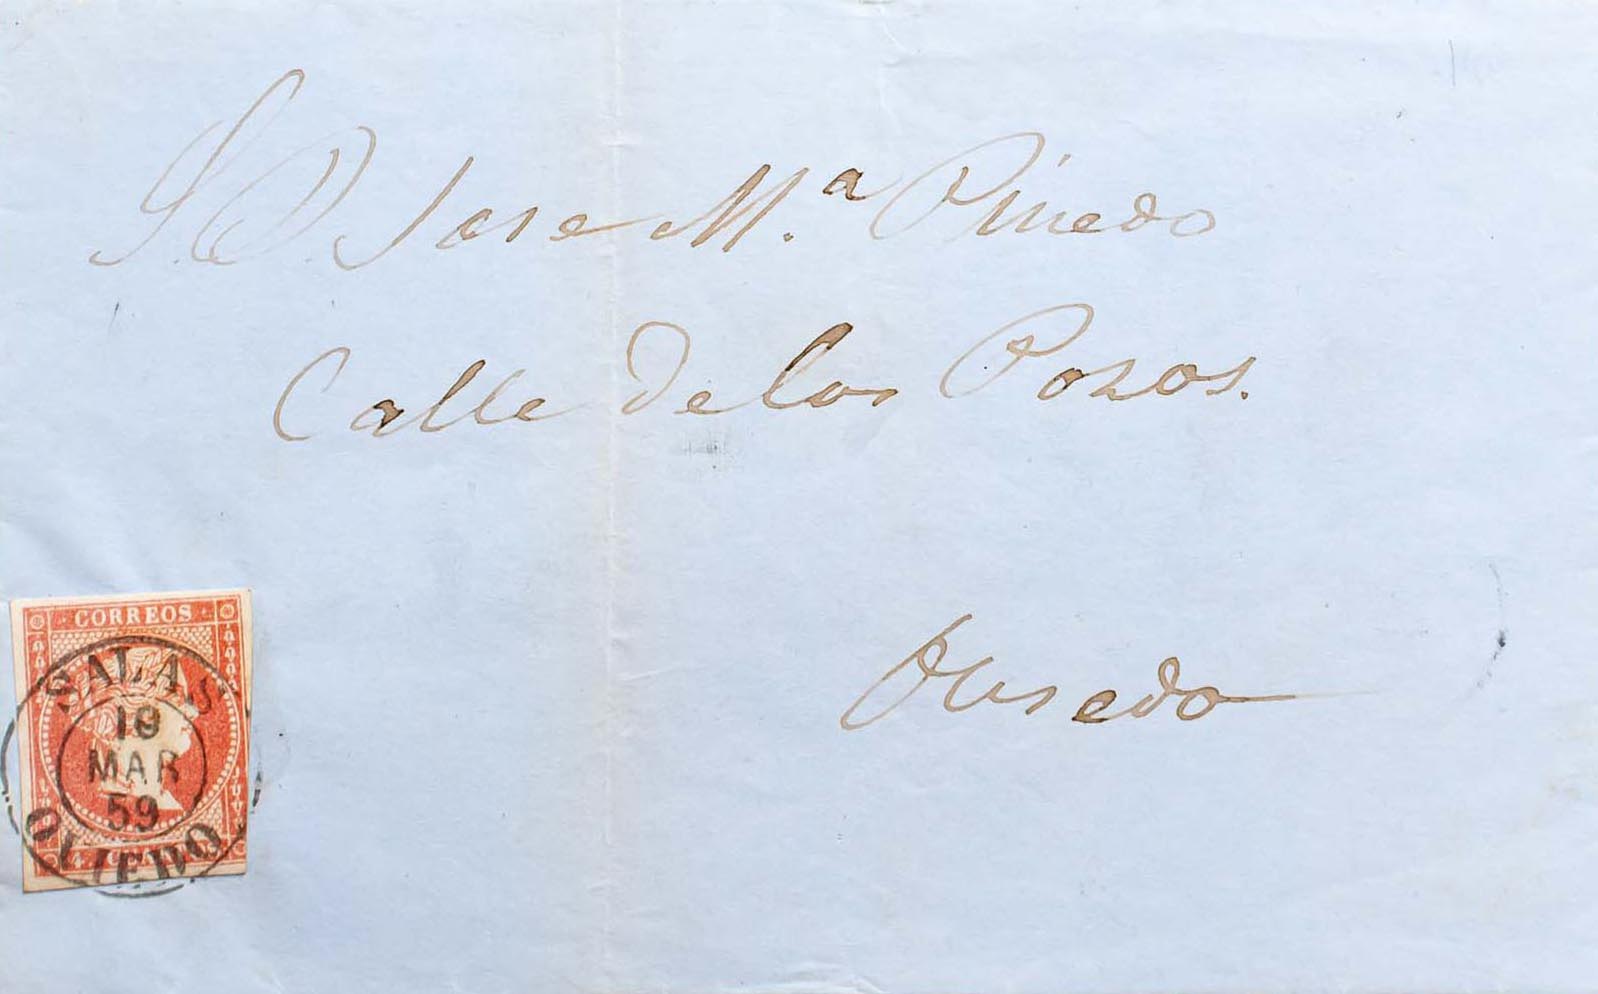 S. D. Jose M.ª Pinedo
Calle de los Posos.
Oviedo
CORREOS
SALAS
18
MAR
59
OVIEDO